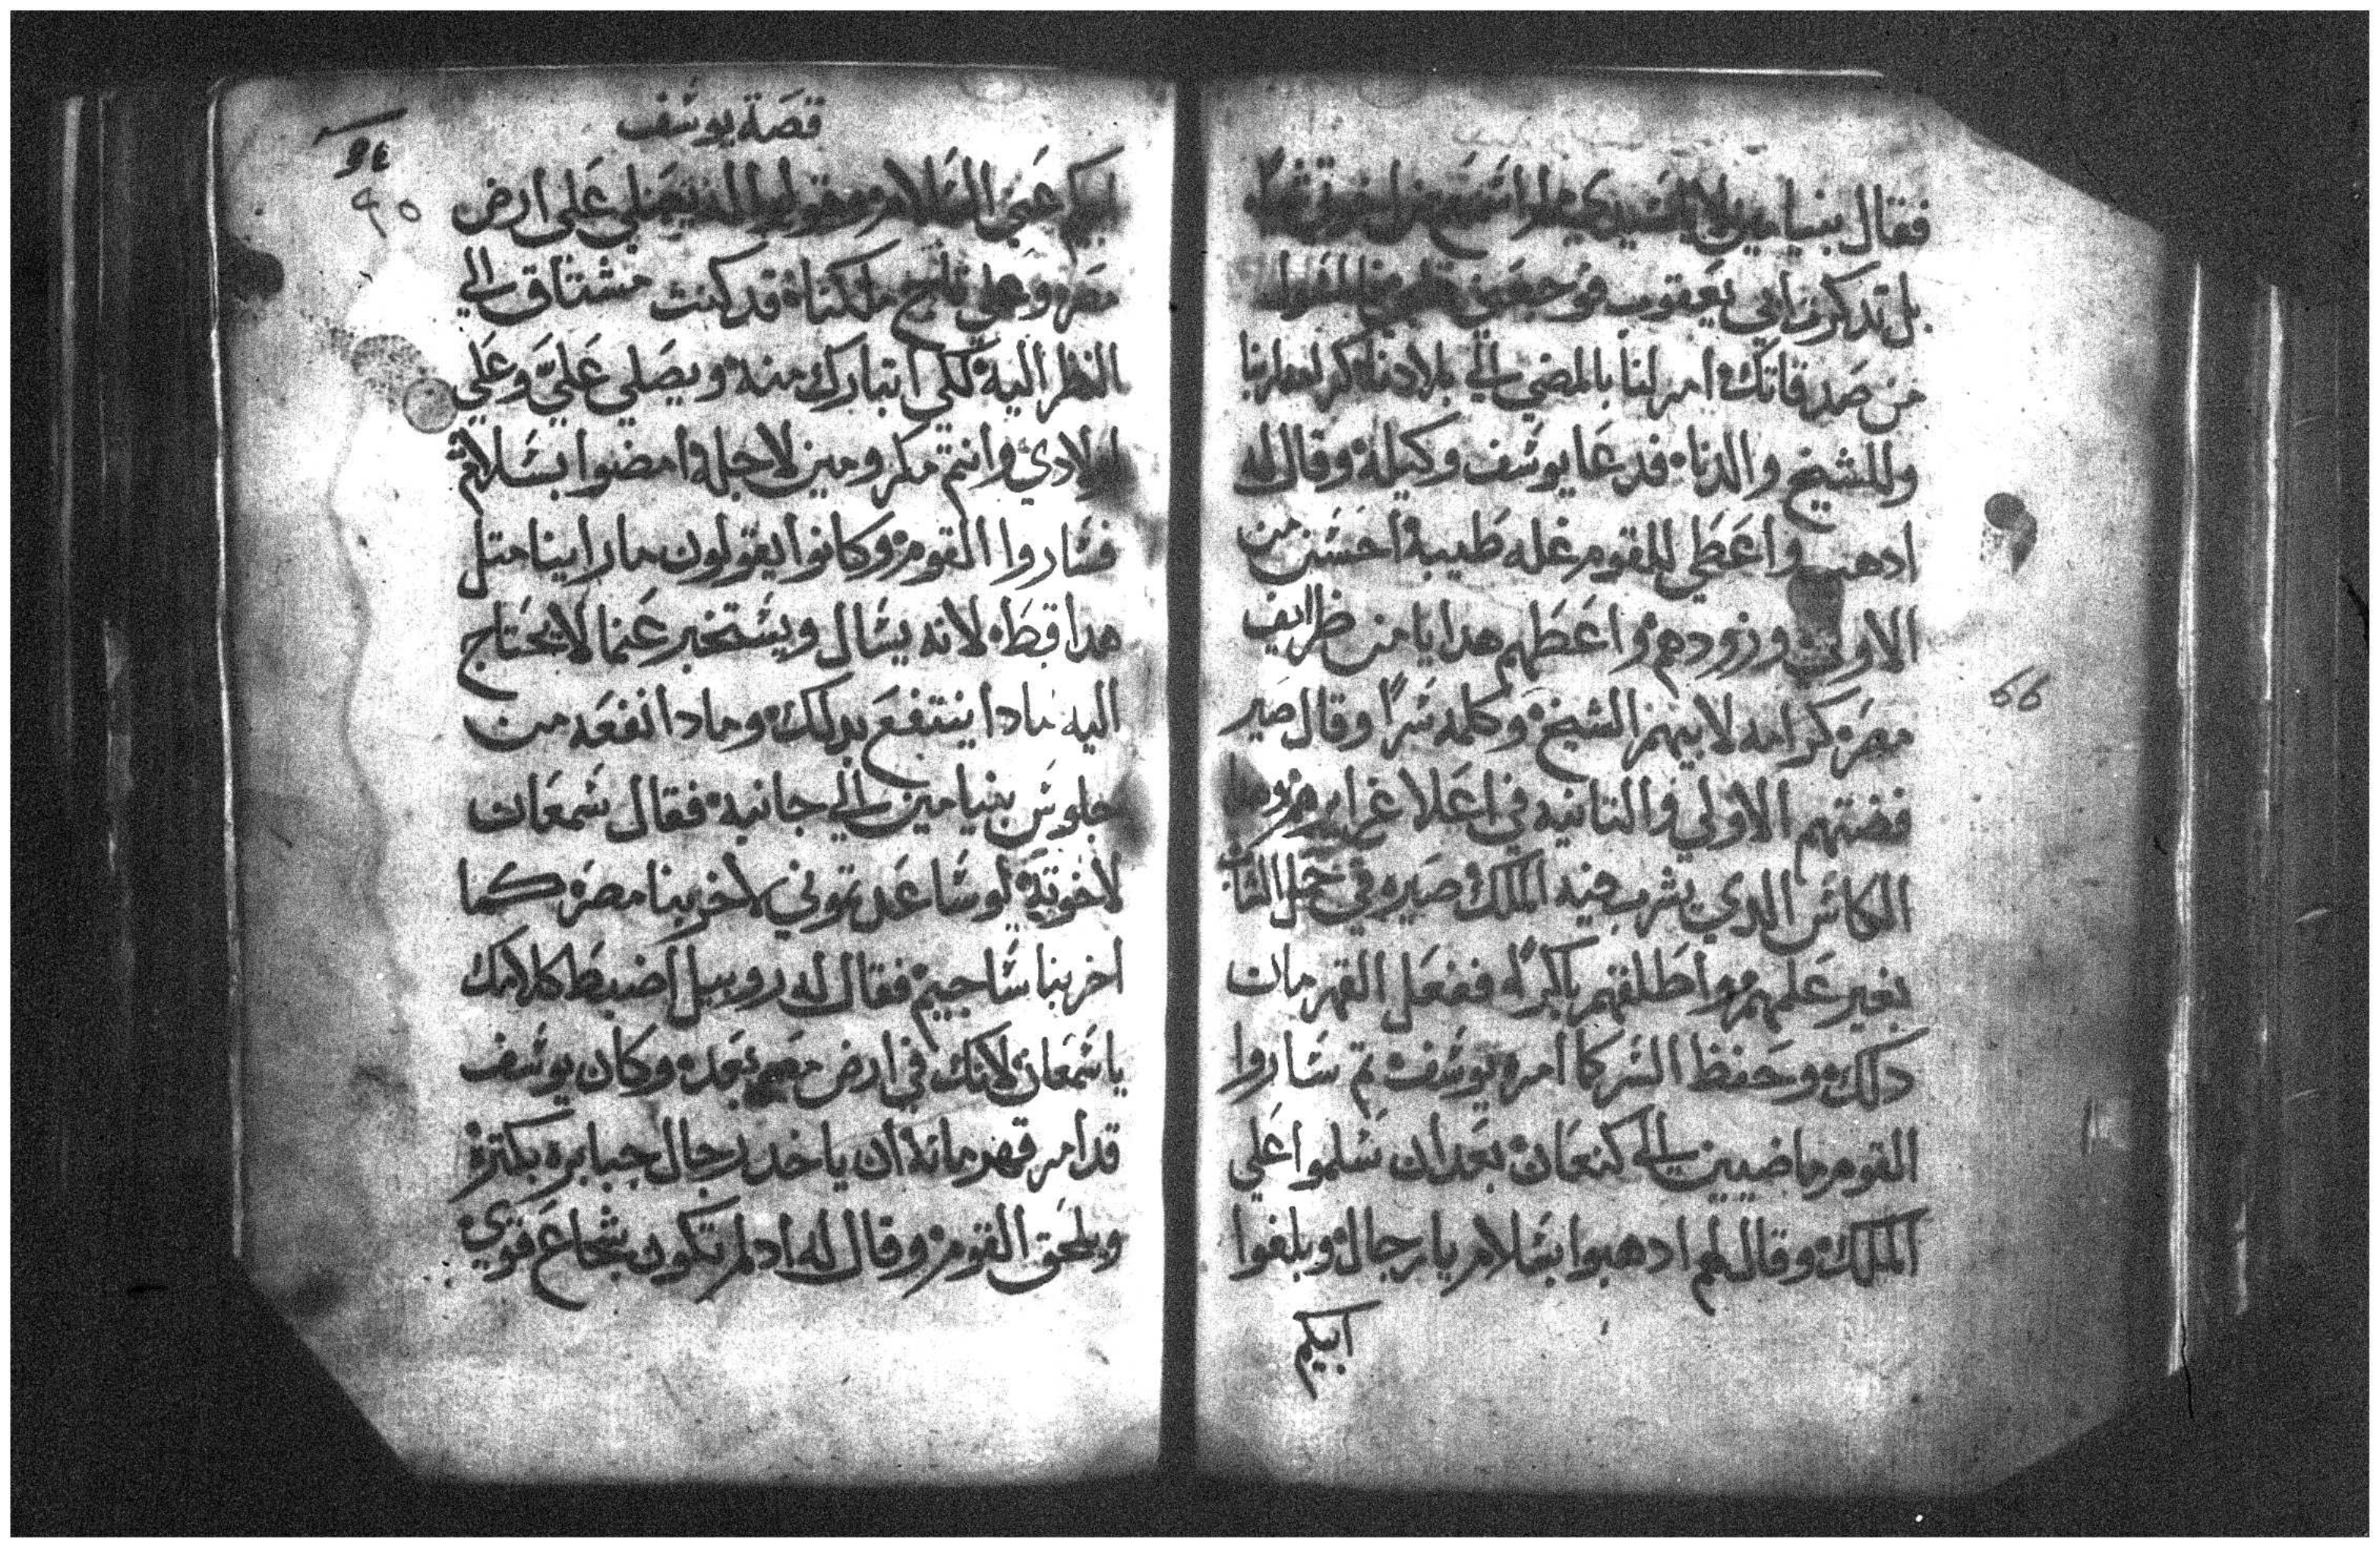 فقال بنيامين لا يا سيدي
بل تدكرت ابي يعقوب فوجعني قلبي
من صدقاتك امر لنا بالمضي الي بلادنا
وللشيخ والدنا فدعا يوسف وكيله وقال له
ادهب واعطي للقوم غله طيبة احسن من
الاولي وزودهم واعطهم هدايا من ظرايف
مصر كرامه لابيهم الشيخ وكلمه سرًا وقال صير
فضتهم الاولي والتانيه في اعلا غرايرهم
الكاس الدي يشرب فيه الملك صيره في حمل الشاب
بغير علمهم واطلقهم باكرًا ففعل القهرمان
دلك وحفظ السر كما امره يوسف تم ساروا
القوم ماضيين الي كنعان بعد ان سلموا علي
الملك وقال لهم ادهبوا بسلام يا رجال وبلغوا
ابيكم
قصة يوسف
٩٥
ابيكم عني السلام وقولوا له يصلي علي ارض
مصر وعلي تاج ملكنا قد كنت مشتاق الي
النظر اليه لكي اتبارك منه ويصلي عليَّ وعلي
اولادي وانتم مكرومين لاجله امضوا بسلام
فساروا القوم وكانوا يقولون ما راينا متل
هدا قط لانه يسال ويستخبر عنما لا يحتاج
اليه مادا ينتفع بدلك ومادا نفعه من
جلوس بنيامين الي جانبه فقال سمعان
لاخوته لو ساعدتوني لاخربنا مصر كما
اخربنا ساجيم فقال له روبيل اضبط كلامك
يا سمعان لانك في ارض مصر بعد وكان يوسف
قد امر قهرمانه ان ياخد رجال جبابره بكترة
ويلحق القوم وقال له اد لم تكون شجاع قوي
66